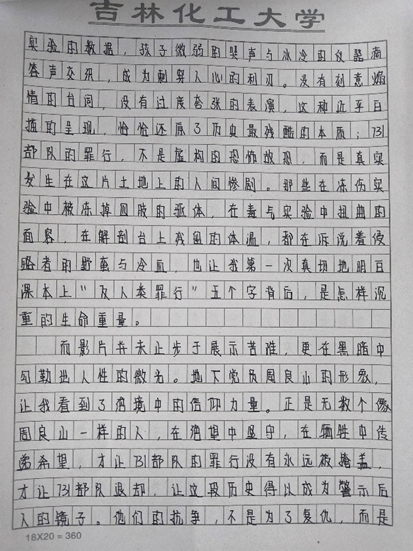 吉林化工大学
实验的数据，孩子微弱的哭声与冰冷的仪器滴
答声交织，成为刺穿人心的利刃。没有刻意煽
情的台词，没有过度夸张的表演，这种近乎白
描的呈现，恰恰还原了历史最残酷的本质：731
部队的罪行，不是虚构的恐怖故事，而是真实
发生在这片土地上的人间惨剧。那些在冻伤实
验中被冻掉四肢的躯体，在毒气实验中扭曲的
面容，在解剖台上残留的体温，都在诉说着侵
略者的野蛮与冷血，也让我第一次真切地明白
课本上"反人类罪行"五个字背后，是怎样沉
重的生命重量。
而影片并未止步于展示苦难，更在黑暗中
勾勒出人性的微光。地下党员周良山的形象，
让我看到了绝境中的信仰力量。正是无数个像
周良山一样的人，在绝望中坚守，在牺牲中传
递希望，才让731部队的罪行没有永远被掩盖，
才让731部队退却，让这段历史得以成为警示后
人的镜子。他们的抗争，不是为了复仇，而是
18X20=360